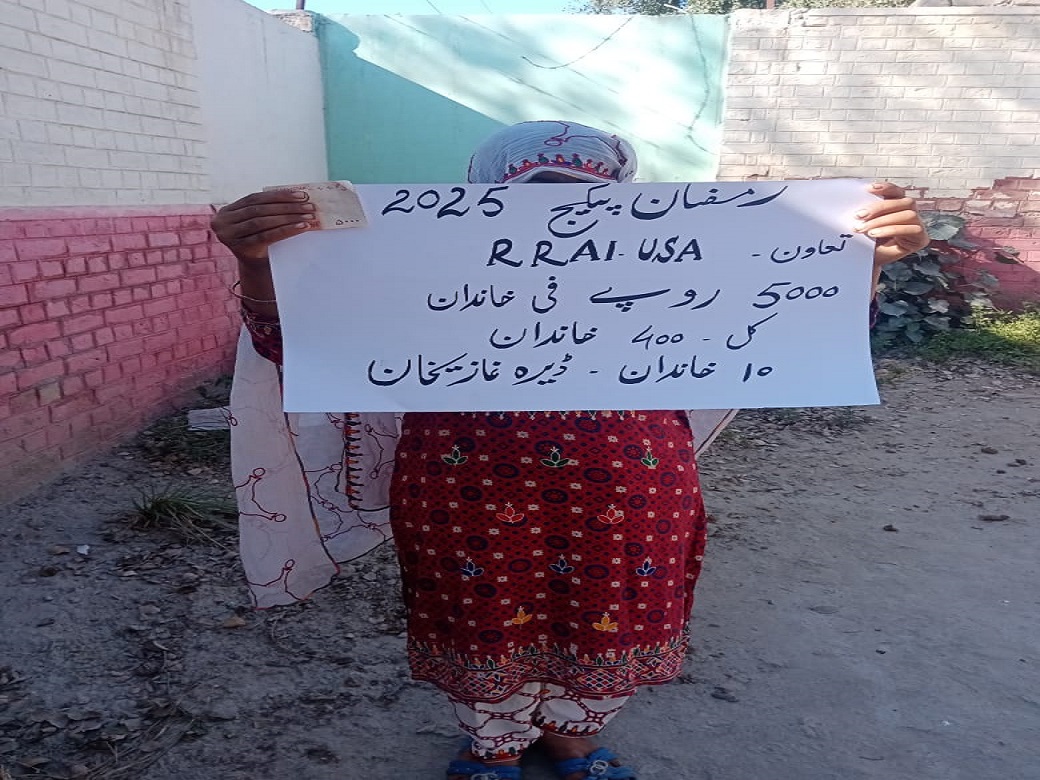 رمضان پیکج 2025
تعاون - RRAI-USA
5000 روپے فی خاندان
کل - 400 خاندان
10 خاندان - ڈیرہ غازیخان
۵۰۰۰